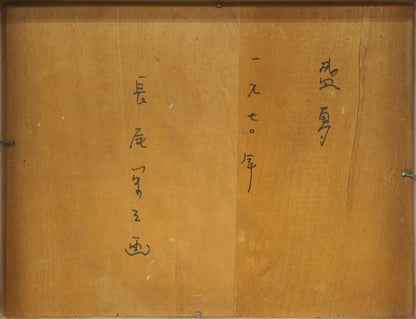 盛夏
一九七〇年
長尾 立画